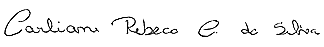 Carliane Rebeca C. da Silva